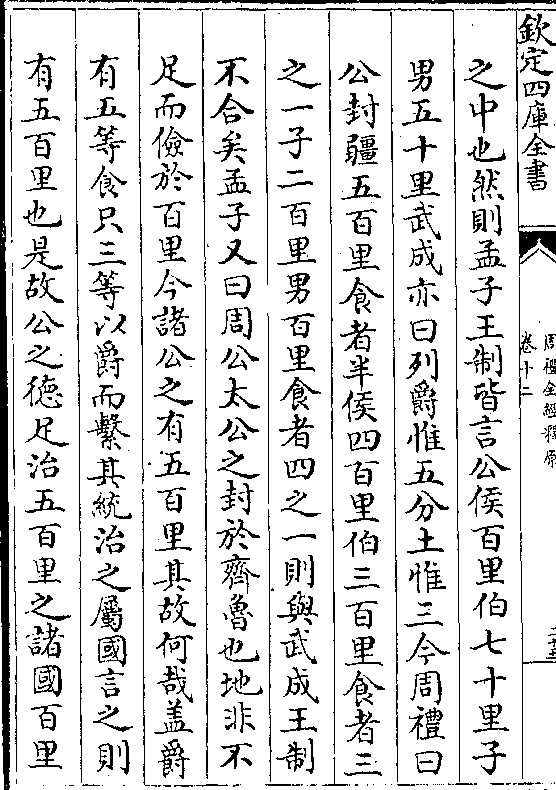 欽定四庫全書
周禮全經釋原
卷十二
之中也然則孟子王制皆言公侯百里伯七十里子
男五十里武成亦曰列爵惟五分土惟三今周禮曰
公封疆五百里食者半侯四百里伯三百里食者三
之一子二百里男百里食者四之一則與武成王制
不合矣孟子又曰周公太公之封於齊魯也地非不
足而儉於百里今諸公之有五百里其故何哉盖爵
有五等食只三等以爵而繫其統治之屬國言之則
有五百里也是故公之德足治五百里之諸國百里